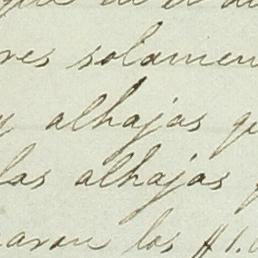 que en el
res solamen
y alhajas qu
las alhajas
aron los $1.0